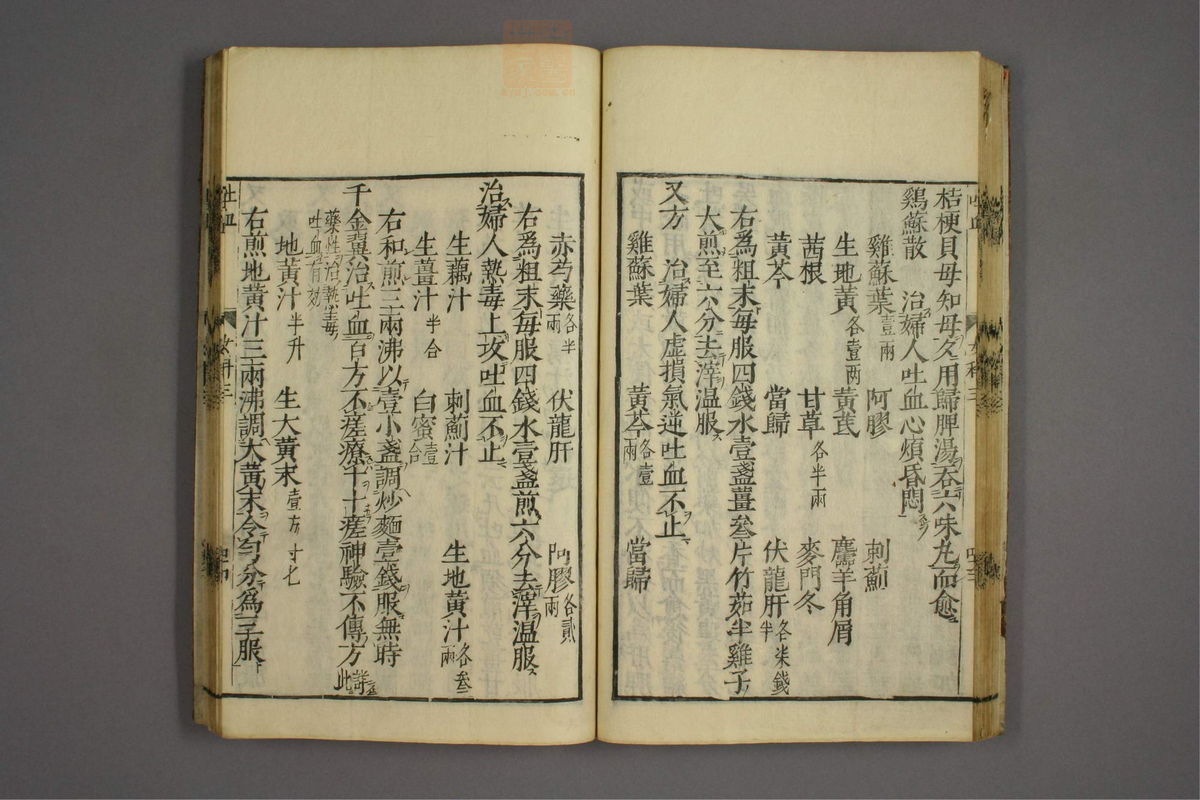 桔梗貝母知母夂用歸脾湯吞六味丸而愈
鷄蘇散　治婦人吐血心煩昏悶
雞蘇葉壹兩　阿膠　刺薊
生地黃各壹兩　黃芪　羚羊角屑
茜根　甘草各半兩　麥門冬
黃芩　當歸　伏龍肝各柒錢半
右爲粗末每服四錢水壹盞薑叁片竹茹半雞子
大煎至六分去滓温服
又方　治婦人虛損氣逆吐血不止
雞蘇葉　黃芩各壹兩　當歸
赤芍藥各半兩　伏龍肝　阿膠各貳兩
右爲粗末每服四錢水壹盞煎六分去滓温服
治婦人熱毒上攻吐血不止
生藕汁　刺薊汁　生地黃汁各叁兩
生薑汁半合　白蜜壹合
右和煎三兩沸以壹小盞調炒麵壹錢服無時
千金翼治吐血百方不瘥療十十瘥神驗不傳方
藥性治熱毒吐血有効
地黃汁半升　生大黃末壹方寸匕
右煎地黃汁三兩沸調大黃末令勻分爲三服
吐血
女科三
四卩